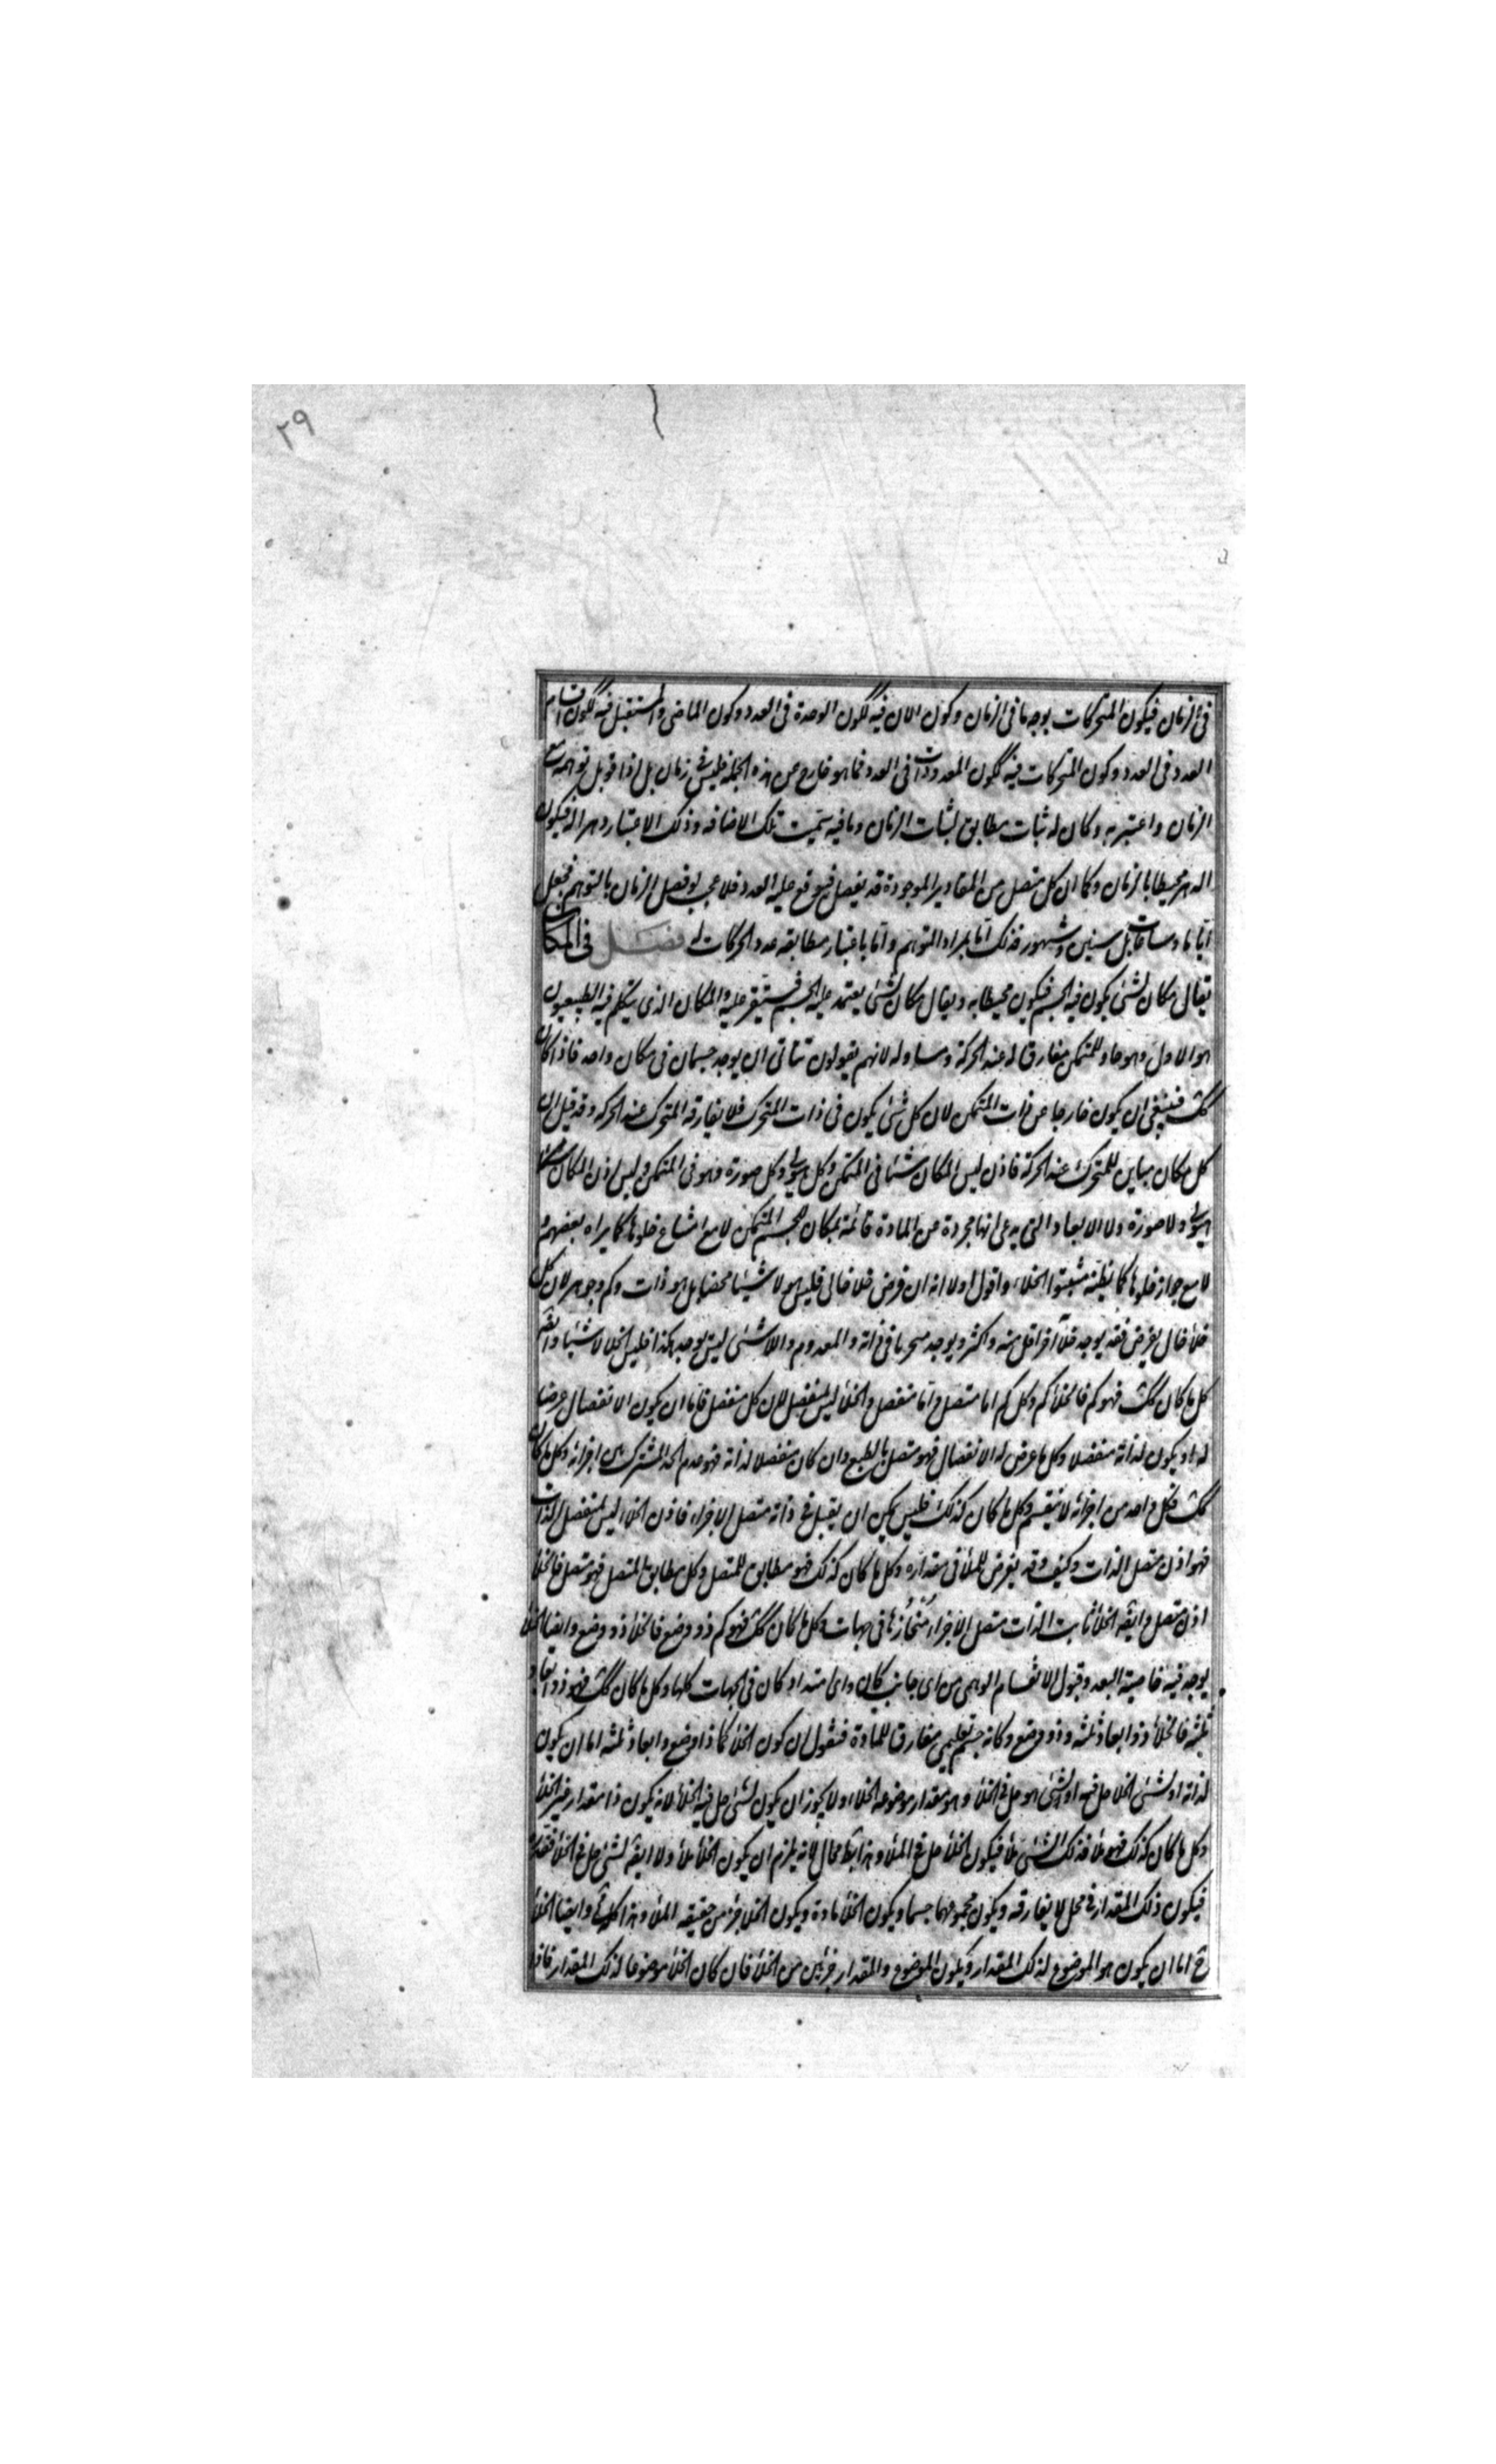 ٢٩
فى الزمان فيكون المتحركات بوجه ما فى الزمان وكون الان فيه ككون الوحدة فى العدد وكون الماضى والمستقبل فيه ككون اقسام
العدد فى العدد وكون المتحركات فيه ككون المعدودات فى العدد فما هو خارج عن هذه الجملة فليس فى زمان بل اذا قوبل توهمه مع
الزمان واعتبر به وكان له ثبات مطابق لثبات الزمان وما فيه سميت تلك الاضافة وذلك الاعتبار دهرا له فيكون
الدهر محيطا بالزمان وكما ان كل متصل من المقادير الموجودة قد يفصل فيوقع عليه العدد فلا عجب لو فصل الزمان بالتوهم فجعل
اياما وساعات بل سنين وشهور فذلك اما بمراد المتوهم واما باعتبار مطابقه عدد الحركات له فصل فى المكان
يقال مكان لشئ يكون فيه الجسم فيكون محيطا به ويقال مكان لشئ يعتمد عليه الجسم فيستقر عليه والمكان الذى يتكلم فيه الطبيعيون
هو الاول وهو حاو للمتمكن مفارق له عند الحركة ومساو له لانهم يقولون يتاتى ان يوجد جسمان فى مكان واحد فاذا كان
كك فينبغى ان يكون خارجا عن ذات المتمكن لان كل شئ يكون فى ذات المتحرك فلا يفارقه المتحرك عند الحركه وقد قيل ان
كل مكان مباين للمتحرك عند الحركة فاذن ليس المكان شئا فى المتمكن وكل هيولى وكل صورة فهو فى المتمكن وليس اذن المكان
هيولى ولا صورة ولا الابعاد التى يدعى انها مجردة عن المادة قائمة بمكان الجسم المتمكن لا مع امتناع خلوها كما يراه بعضهم و
لا مع جواز خلوها كما يظنه مثبتوا الخلاء واقول اولا انه ان فرض خلا خالى فليس هو لا شيئا محضا بل هو ذات وكم وجوهر لان كل
خلا خال يفرض فقد يوجد خلاء آخر اقل منه واكثر ويوجد متجزيا فى ذاته والمعدوم واللاشئ ليس يوجد هكذا فليس الخلا لا شيئا وايضا
كل ما كان كك فهو كم فالخلا كم وكل كم اما متصل واما منفصل والخلأ ليس بمنفصل لان كل منفصل فاما ان يكون الانفصال عرضا
له او يكون لذاته منفصلا وكل ما عرض له الانفصال فهو متصل بالطبع وان كان منفصلا لذاته فهو عدم الحد المشترك بين اجزائه وكل ما كان
كك فكل واحد من اجزائه لا ينقسم وكل ما كان كذلك فليس يمكن ان يقبل فى ذاته متصل الاجزاء فاذن الخلاء ليس بمنفصل الذات
فهو اذن متصل الذات وكيف وقد يفرض للملأ فى مقداره وكل ما كان كذلك فهو مطابق للمتصل وكل مطابق المتصل فهو متصل فالخلأ
اذن متصل وايضا الخلأ ثابت الذات متصل الاجزاء منحازها فى جهات وكل ما كان كك فهو كم ذو وضع فالخلأ ذو وضع وايضا الخلأ
يوجد فيه خاصية البعد وقبول الانقسام الوهمى من اى جانب كان واى امتداد كان فى الجهات كلها وكل ما كان كك فهو ذو ابعاد
ثلثه فالخلأ ذو ابعاد ثلثه وذو وضع وكانه جسم تعليمى مفارق للمادة فنقول ان كون الخلأ كما ذا وضع وابعاد ثلثه اما ان يكون
لذاته او لشئ الخلا حل فيه او لشئ هو حل فى الخلأ وهو مقدار موضوعه الخلاء ولا يجوز ان يكون لشئ حل فيه الخلأ لانه يكون ذا مقدار غير الخلأ
وكل ما كان كذلك فهو ملأ فذلك الشئ ملأ فيكون الخلأ حل فى الملأ وهذا ايضا محال لانه يلزم ان يكون الخلأ ملأ ولا ايضا لشئ حل فى الخلأ فقدره
فيكون ذلك المقدار فى محل لا يفارقه ويكون مجموعهما جسما ويكون الخلأ مادة ويكون الخلا جزء من حقيقة الملأ وهذا كله وايضا الخلأ
ح اما ان يكون هو الموضوع لذلك المقدار ويكون الموضوع والمقدار جزئين من الخلأ فان كان الخلأ موضوعا لذلك المقدار فاذا